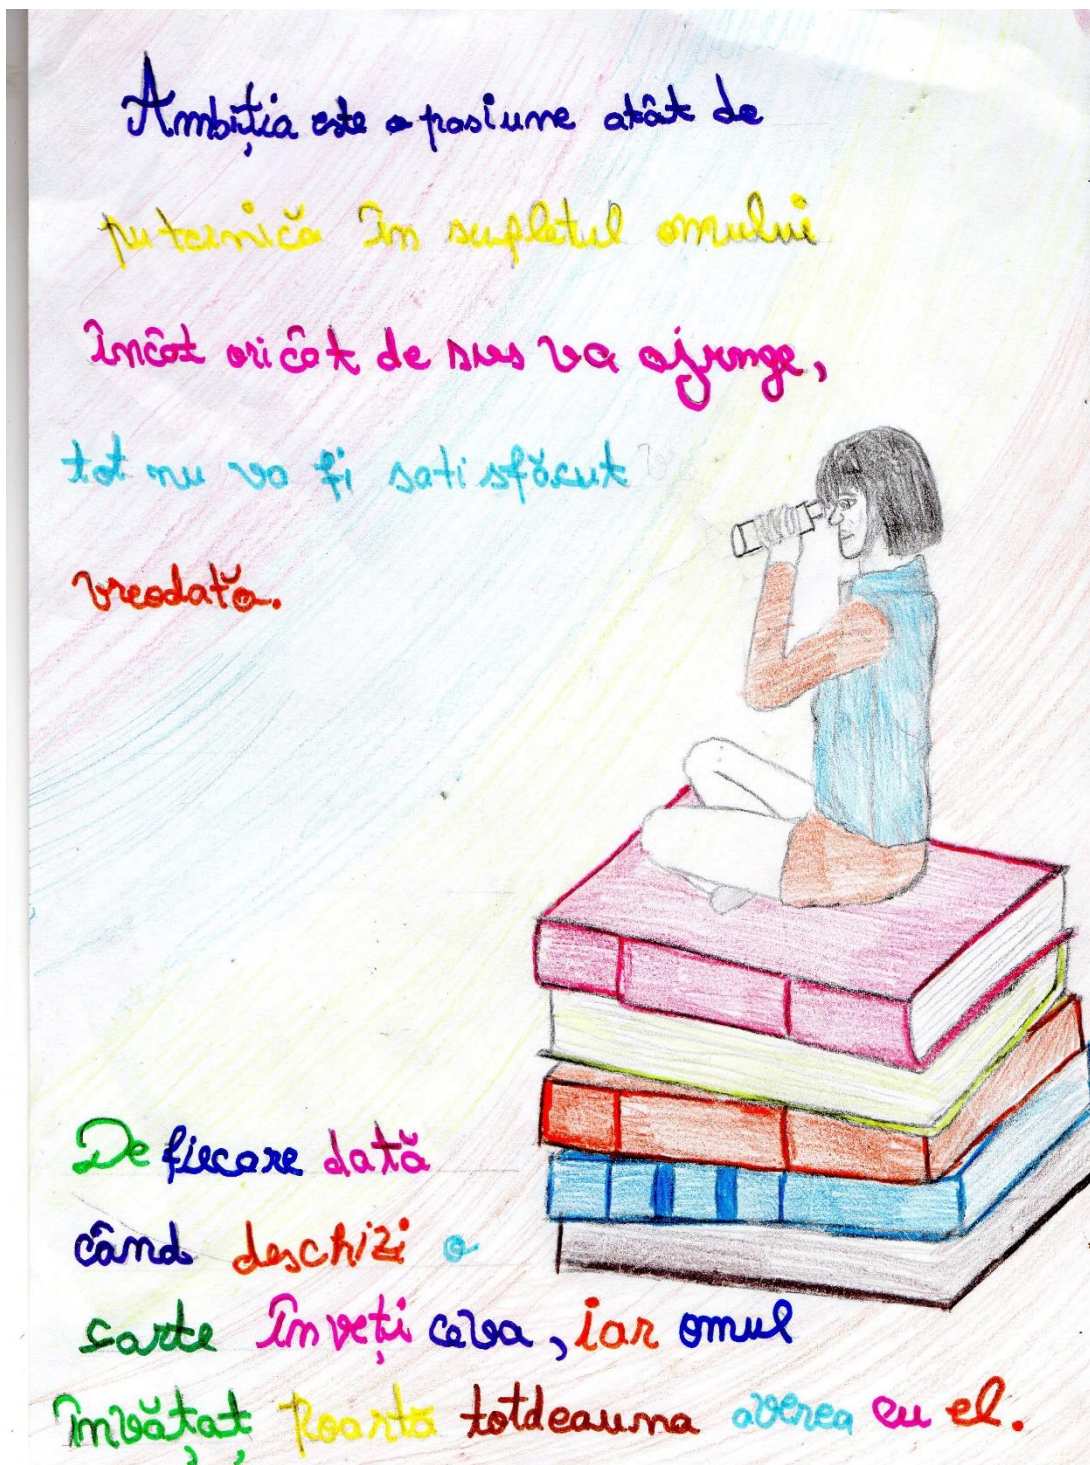 Ambiția este o pasiune atât de
puternică în sufletul omului
încât oricât de sus va ajunge,
tot nu va fi satisfăcut
vreodată.
De fiecare dată
când deschizi o
carte înveți ceva, iar omul
învățat poartă totdeauna averea cu el.